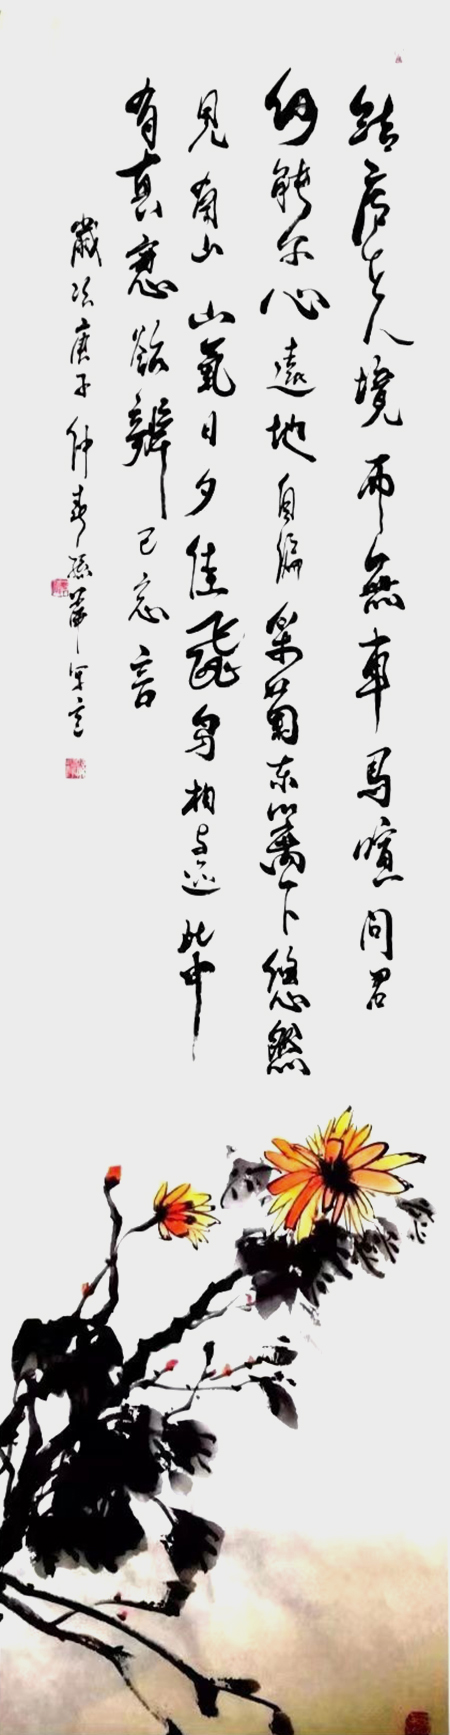 結廬在人境而無車馬喧問君
何能尔心遠地自偏采菊东籬下悠然
見南山山氣日夕佳飛鳥相与還此中
有真意欲辨已忘言
歲次庚子仲春